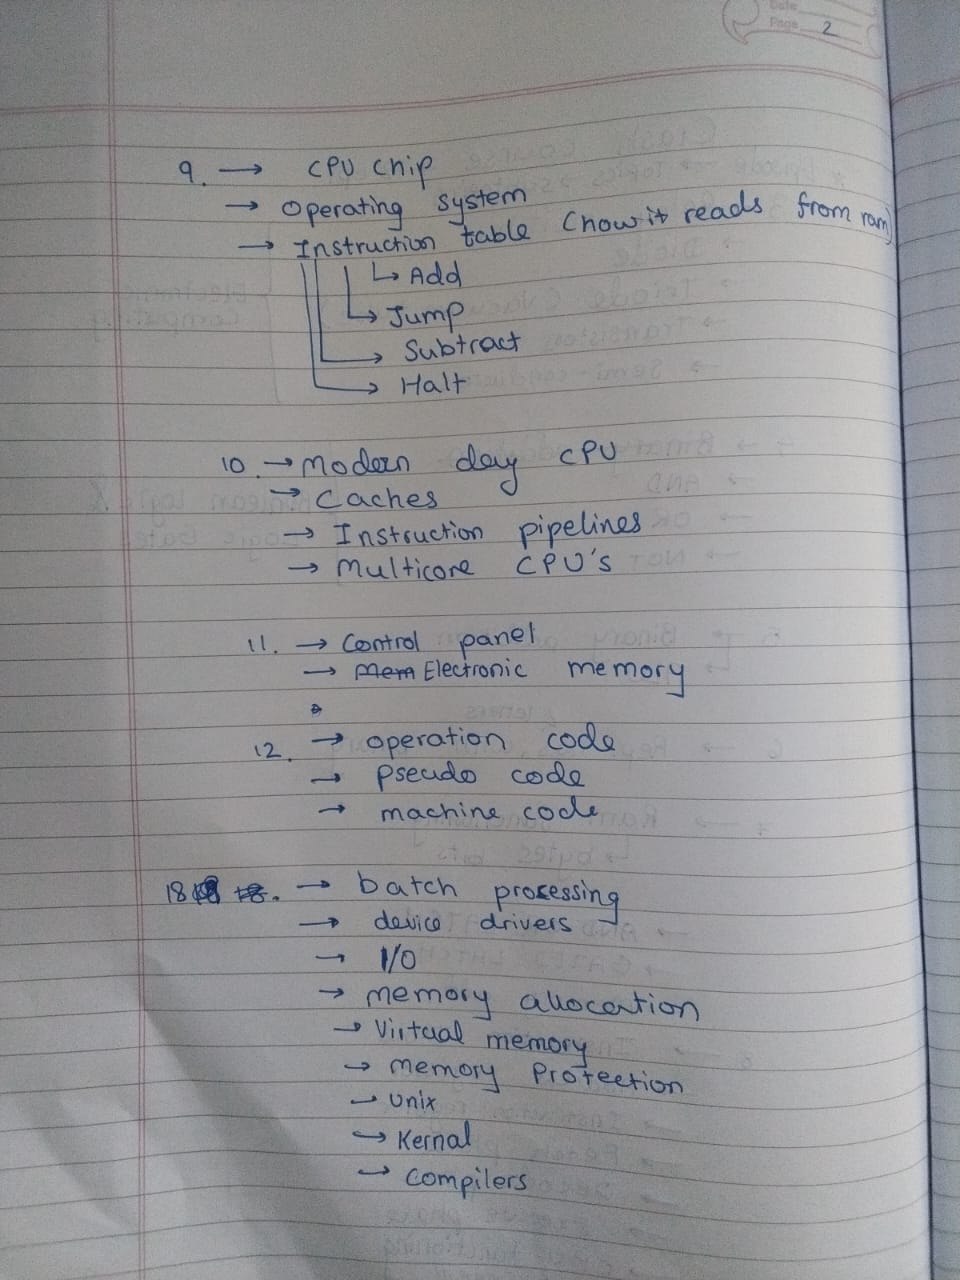 Date
Page 2
9. → CPU chip
→ Operating system
→ Instruction table (how it reads from ram)
↳ Add
↳ Jump
→ Subtract
→ Halt
10. → Modern day CPU
→ Caches
→ Instruction pipelines
→ Multicore CPU's
11. → Control panel
→ Electronic memory
12. → operation code
→ pseudo code
→ machine code
18 → batch processing
→ device drivers
→ I/O
→ memory allocation
→ Virtual memory
→ memory Protection
→ Unix
→ Kernal
→ Compilers